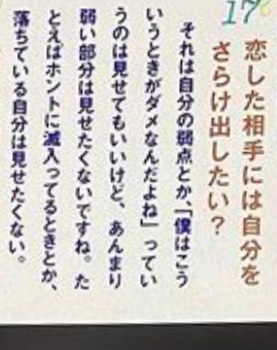 17
恋した相手には自分を
さらけ出したい？
それは自分の弱点とか、「僕はこう
いうときがダメなんだよね」ってい
うのは見せてもいいけど、あんまり
弱い部分は見せたくないですね。た
とえばホントに滅入ってるときとか、
落ちている自分は見せたくない。